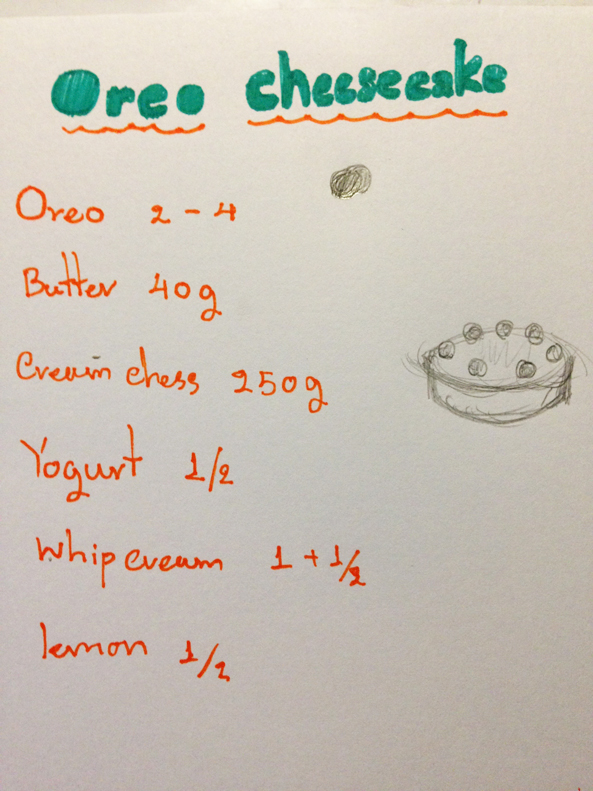 Oreo cheesecake
Oreo 2 - 4
Butter 40g
Cream chess 250g
Yogurt 1/2
Whip cream 1 + 1/2
lemon 1/2